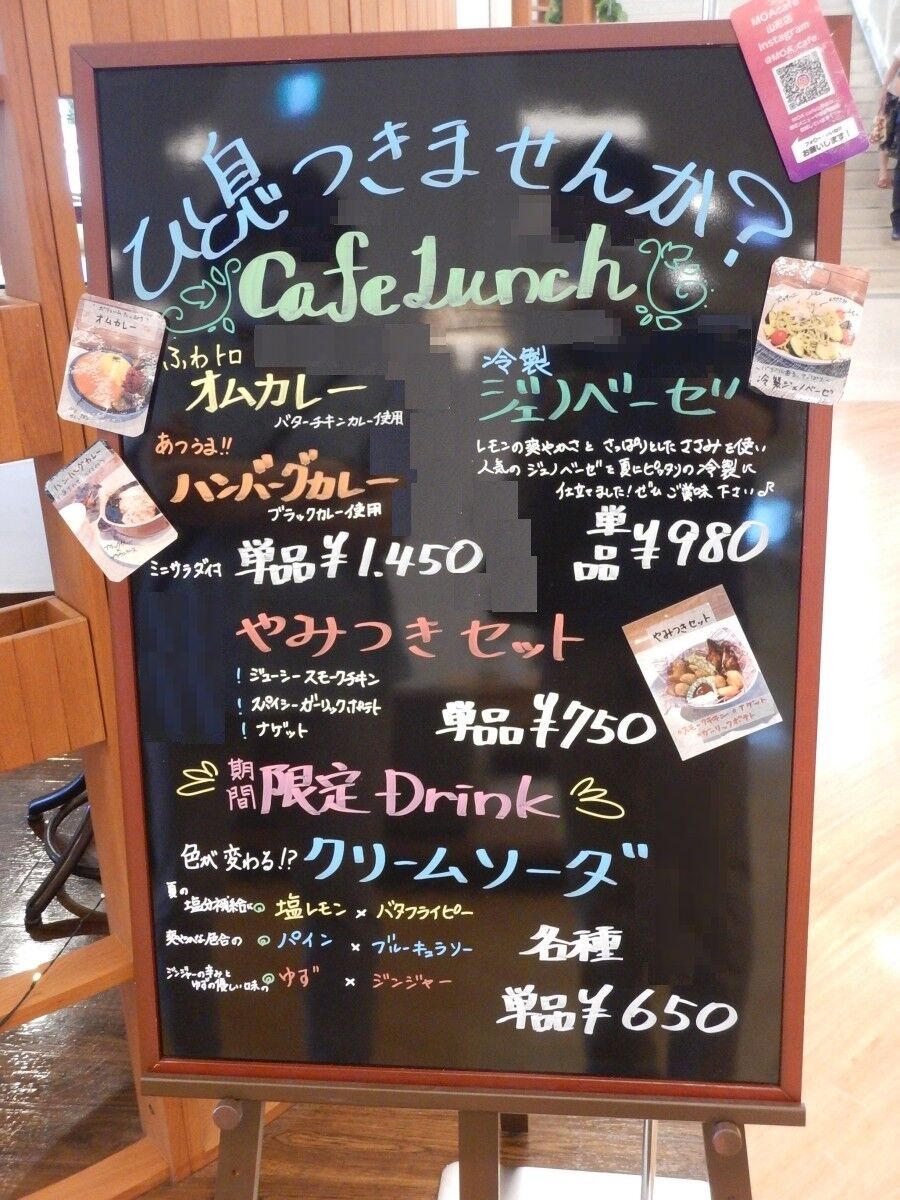 MOAcafe
山形店
Instagram
@MOA_cafe
フォロー・いいね
お願いします!
ひと息つきませんか?
Cafe Lunch
オムカレー
ふわトロ
オムカレー
バターチキンカレー使用
あつうま!!
ハンバーグカレー
ブラックカレー使用
ミニサラダ付 単品¥1.450
ハンバーグカレー
冷製
ジェノベーゼ
レモンの爽やかさと さっぱりとしたささみを使い
人気の ジェノベーゼを夏にピッタリの冷製に
仕立てました!ぜひ ご賞味 下さい♪
単品¥980
冷製ジェノベーゼ
やみつき セット
! ジューシースモークチキン
! スパイシーガーリックポテト
! ナゲット
単品¥750
やみつきセット
スモークチキン
ナゲット
ガーリックポテト
期間限定 Drink
色が変わる!? クリームソーダ
夏の塩分補給に 塩レモン × バタフライピー
爽やかな色合の パイン × ブルーキュラソー
ジンジャーの辛みとゆずの優しい味の ゆず × ジンジャー
各種
単品¥650